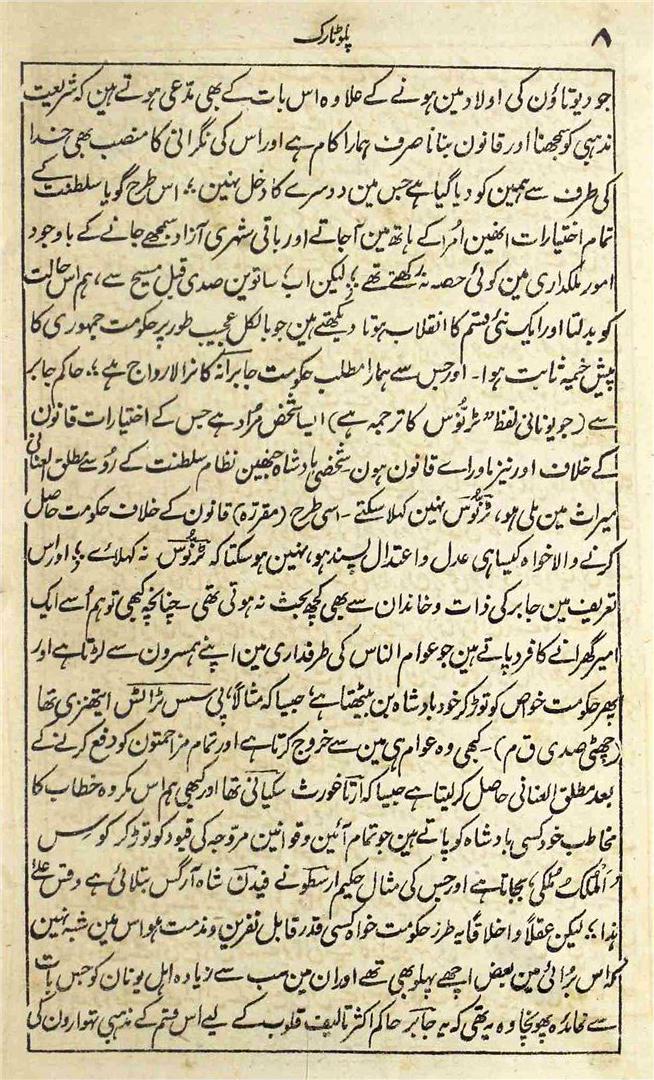 ۸
پلوٹارک
جو دیوتاؤن کی اولاد مین ہونے کے علاوہ اس بات کے بھی مدّعی ہوتے ہین کہ شریعیت
مذہبی کو سمجھنا اور قانون بنانا صرف ہمارا کام ہے اور اس کی نگرانی کا منصب بھی خدا
کی طرف سے ہمین کو دیا گیا ہے جس مین دوسرے کا دخل نہین ؛ اس طرح گویا سلطنت کے
تمام اختیارات انھین اُمرا کے ہاتھ مین آجاتے اور باقی شہری آزاد سمجھے جانے کے باوجود
امور ملکداری مین کوئی حصہ نہ رکھتے تھے ؛ لیکن اب، ساتوین صدی قبل مسیح سے، ہم اس حالت
کو بدلتا اور ایک نئی قسم کا انقلاب ہوتا دیکھتے ہین جو بالکل عجیب طور پر حکومت جمہوری کا
پیش خیمہ ثابت ہوا۔ اور جس سے ہمارا مطلب حکومت جابرانہ کا نرالا رواج ہے ؛ حاکم جابر
سے (جو یونانی لفظ "ٹرنوس کا ترجمہ ہے) ایسا شخص مُراد ہے جس کے اختیارات قانون
کے خلاف اور نیز ماورائے قانون ہون شخصی بادشاہ جنھین نظام سلطنت کے رُو سے مطلق العنانی
میراث مین ملی ہو، ٹرنوس نہین کہلا سکتے۔ اسی طرح (مقررہ) قانون کے خلاف حکومت حاصل
کرنے والا خواہ کیسا ہی عدل و اعتدال پسند ہو، نہین ہو سکتا کہ ٹرنوس نہ کہلائے ؛ اور اس
تعریف مین جابر کی ذات و خاندان سے بھی کچھ بحث نہ ہوتی تھی چنانچہ کبھی تو ہم اُسے ایک
امیر گھرانے کا فرد پاتے ہین جو عوام الناس کی طرفداری مین اپنے ہمسرون سے لڑتا ہے اور
پھر حکومت خواص کو توڑ کر خود بادشاہ بن بیٹھتا ہے، جیسا کہ مثالًا، پی سس ٹراٹس ایتھنزی تھا
(چھٹی صدی ق م)۔ کبھی وہ عوام ہی مین سے خروج کرتا ہے اور تمام مزاحمتون کو دفع کرنے کے
بعد مطلق العنانی حاصل کر لیتا ہے جیسا کہ ارتاغورث سکیانی تھا اور کبھی ہم اس مکروہ خطاب کا
مخاطب خود کسی بادشاہ کو پاتے ہین جو تمام آئین و قوانین مروجہ کی قیود کو توڑ کر کوس
اَلْمُلْکُ مُلْکِی، بجاتا ہے اور جس کی مثال حکیم ارسطو نے فیدن شاہ آرگس بتلائی ہے وقس علیٰ
ہذا ؛ لیکن عقلًا و اخلاقًا یہ طرز حکومت خواہ کسی قدر قابل نفرین و مذمت ہو اس مین شبہ نہین
کہ اس برائی مین بعض اچھے پہلو بھی تھے اور ان مین سب سے زیادہ اہل یونان کو جس بات
سے فائدہ پہونچا وہ یہ تھی کہ یہ جابر حاکم اکثر تالیف قلوب کے لیے اس قسم کے مذہبی تہوارون کی